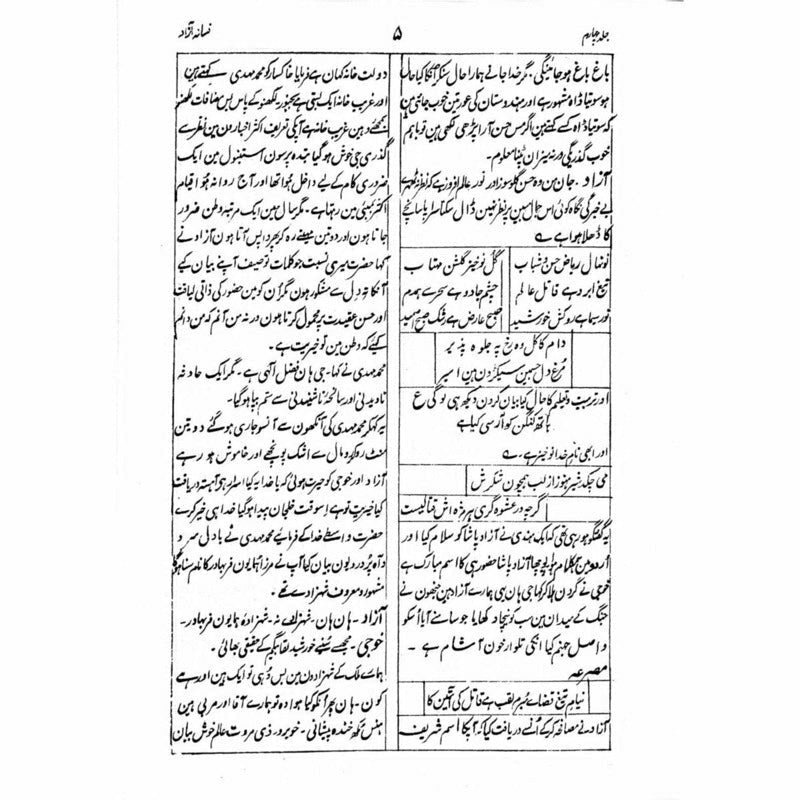 جلد چہارم
۵
فسانہ آزاد
باغ باغ ہو جائینگی۔ مگر خدا جانے ہمارا حال سنکر انکا کیا حال
ہو سوتیا ڈاہ مشہور ہے اور ہندوستان کی عورتین خوب جانتی ہین
کہ سوتیا ڈاہ کسے کہتے ہین اگر مس حسن آرا پڑھی لکھی ہین تو باہم
خوب گذریگی ورنہ میزان پٹنا معلوم۔
آزاد۔ جان من وہ حسن گلوسوز اور نور عالم افروز ہے کہ نظر نہ ٹھہرے
بے خیرگی نگاہ کوئی اس جمال مبین پر نظر نہین ڈال سکتا سراپا سانچے
کا ڈھلا ہوا ہے ے
نونہال ریاض حسن و شباب
گل نوخیز گلشن مہتاب
تیغ ابرو ہے قاتل عالم
چشم جادو ہے سحر سے ہمدم
نور سیما ہے روکش خورشید
صبح عارض ہے رشک صبح امید
دام کاکل وہ رخ پہ جلوہ پذیر
مرغ دل جسمین سیکڑون ہین اسیر
اور تربیت و تعلیم کا حال کیا بیان کرون دیکھ ہی لوگی ع
ہاتھ کنگن کو آرسی کیا ہے
اور ابھی نام خدا نوخیز ہے۔ ے
می چکد شیر ہنوز از لب ہمچون شکرش
گرچہ در عشوہ گری ہر مژہ اش قتالیست
یہ گفتگو ہو رہی تھی کہ ایک ہندی نے آزاد پاشا کو سلام کیا اور
اردو مین ہمکلام ہوا پوچھا آزاد پاشا حضور ہی کا اسم مبارک ہے
خوجی نے گردن ہلا کر کہا جی ہان یہی ہمارے آزاد ہین جنھون نے
جنگ کے میدان مین سب کو نیچا دکھایا جو سامنے آیا اسکو
واصل جہنم کیا انکی تلوار خون آشام ہے۔
مصرعہ
نیام تیغ قضا سے سرمہ لقب ہے قاتل کی آستین کا
آزاد نے مصافحہ کر کے اُنسے دریافت کیا کہ آپکا اسم شریف
دولت خانہ کہان ہے فرمایا خاکسار کو محمد مہدی کہتے ہین
اور غریب خانہ ایک بستی ہے بجنور لکھنؤ کے پاس بس مضافات لکھنؤ
سمجھئے وہین غریب خانہ ہے آپکی تعریف اکثر اخبارون مین نظر سے
گذری جی خوش ہو گیا بندہ پرسون استنبول مین ایک
ضروری کام کے لیے داخل ہوا تھا اور آج روانہ ہوا قیام
اکثر بمبئی مین رہتا ہے۔ مگر سال مین ایک مرتبہ وطن ضرور
جاتا ہون اور دو تین مہینے رہ کر پھر واپس آتا ہون آزاد نے
کہا حضرت میری نسبت جو کلمات توصیف آپنے بیان کیے
انکا تہ دل سے مشکور ہون مگر ان کو مین حضور کی ذاتی لیاقت
اور حسن عقیدت پر محمول کرتا ہون ورنہ من آنم کہ من دانم
کہیئے کہ وطن مین تو خیریت ہے۔
محمد مہدی نے کہا۔ جی ہان فضل آلہی ہے۔ مگر ایک حادثہ
نادیدنی اور سانحۂ ناشنیدنی سے ستم بپا ہو گیا۔
یہ کہکر محمد مہدی کی آنکھون سے آنسو جاری ہو گئے دو تین
منٹ رو کر رومال سے اشک پونچھے اور خاموش ہو رہے
آزاد اور خوجی کو حیرت ہوئی کہ یا خدا یہ کیا اسرار ہے آہستہ دریافت
کیا خیریت تو ہے اسوقت خلجان پیدا ہو گیا خدا ہی خیر کرے
حضرت واسطے خدا کے فرمایئے محمد مہدی نے با دل سرد
و آہ پر درد یون بیان کیا آپ نے مرزا ہمایون فر بہادر کا نام سنا ہوگا
مشہور و معروف شہزادے تھے۔
آزاد۔ ہان ہان۔ شہزادے نہ۔ شہزادہ ہمایون فر بہادر۔
خوجی۔ مجھسے سنیئے خورشید لقا بیگم کے حقیقی بھائی۔
ہمارے ملک کے شہزادون مین بس وہی تو ایک ہین اور ہے
کون۔ ہان پھر انکو کیا ہوا وہ تو ہمارے آقا اور مربی ہین
ہنس مکھ خندہ پیشانی۔ خوبرو۔ ذی مروت عالم خوش بیان